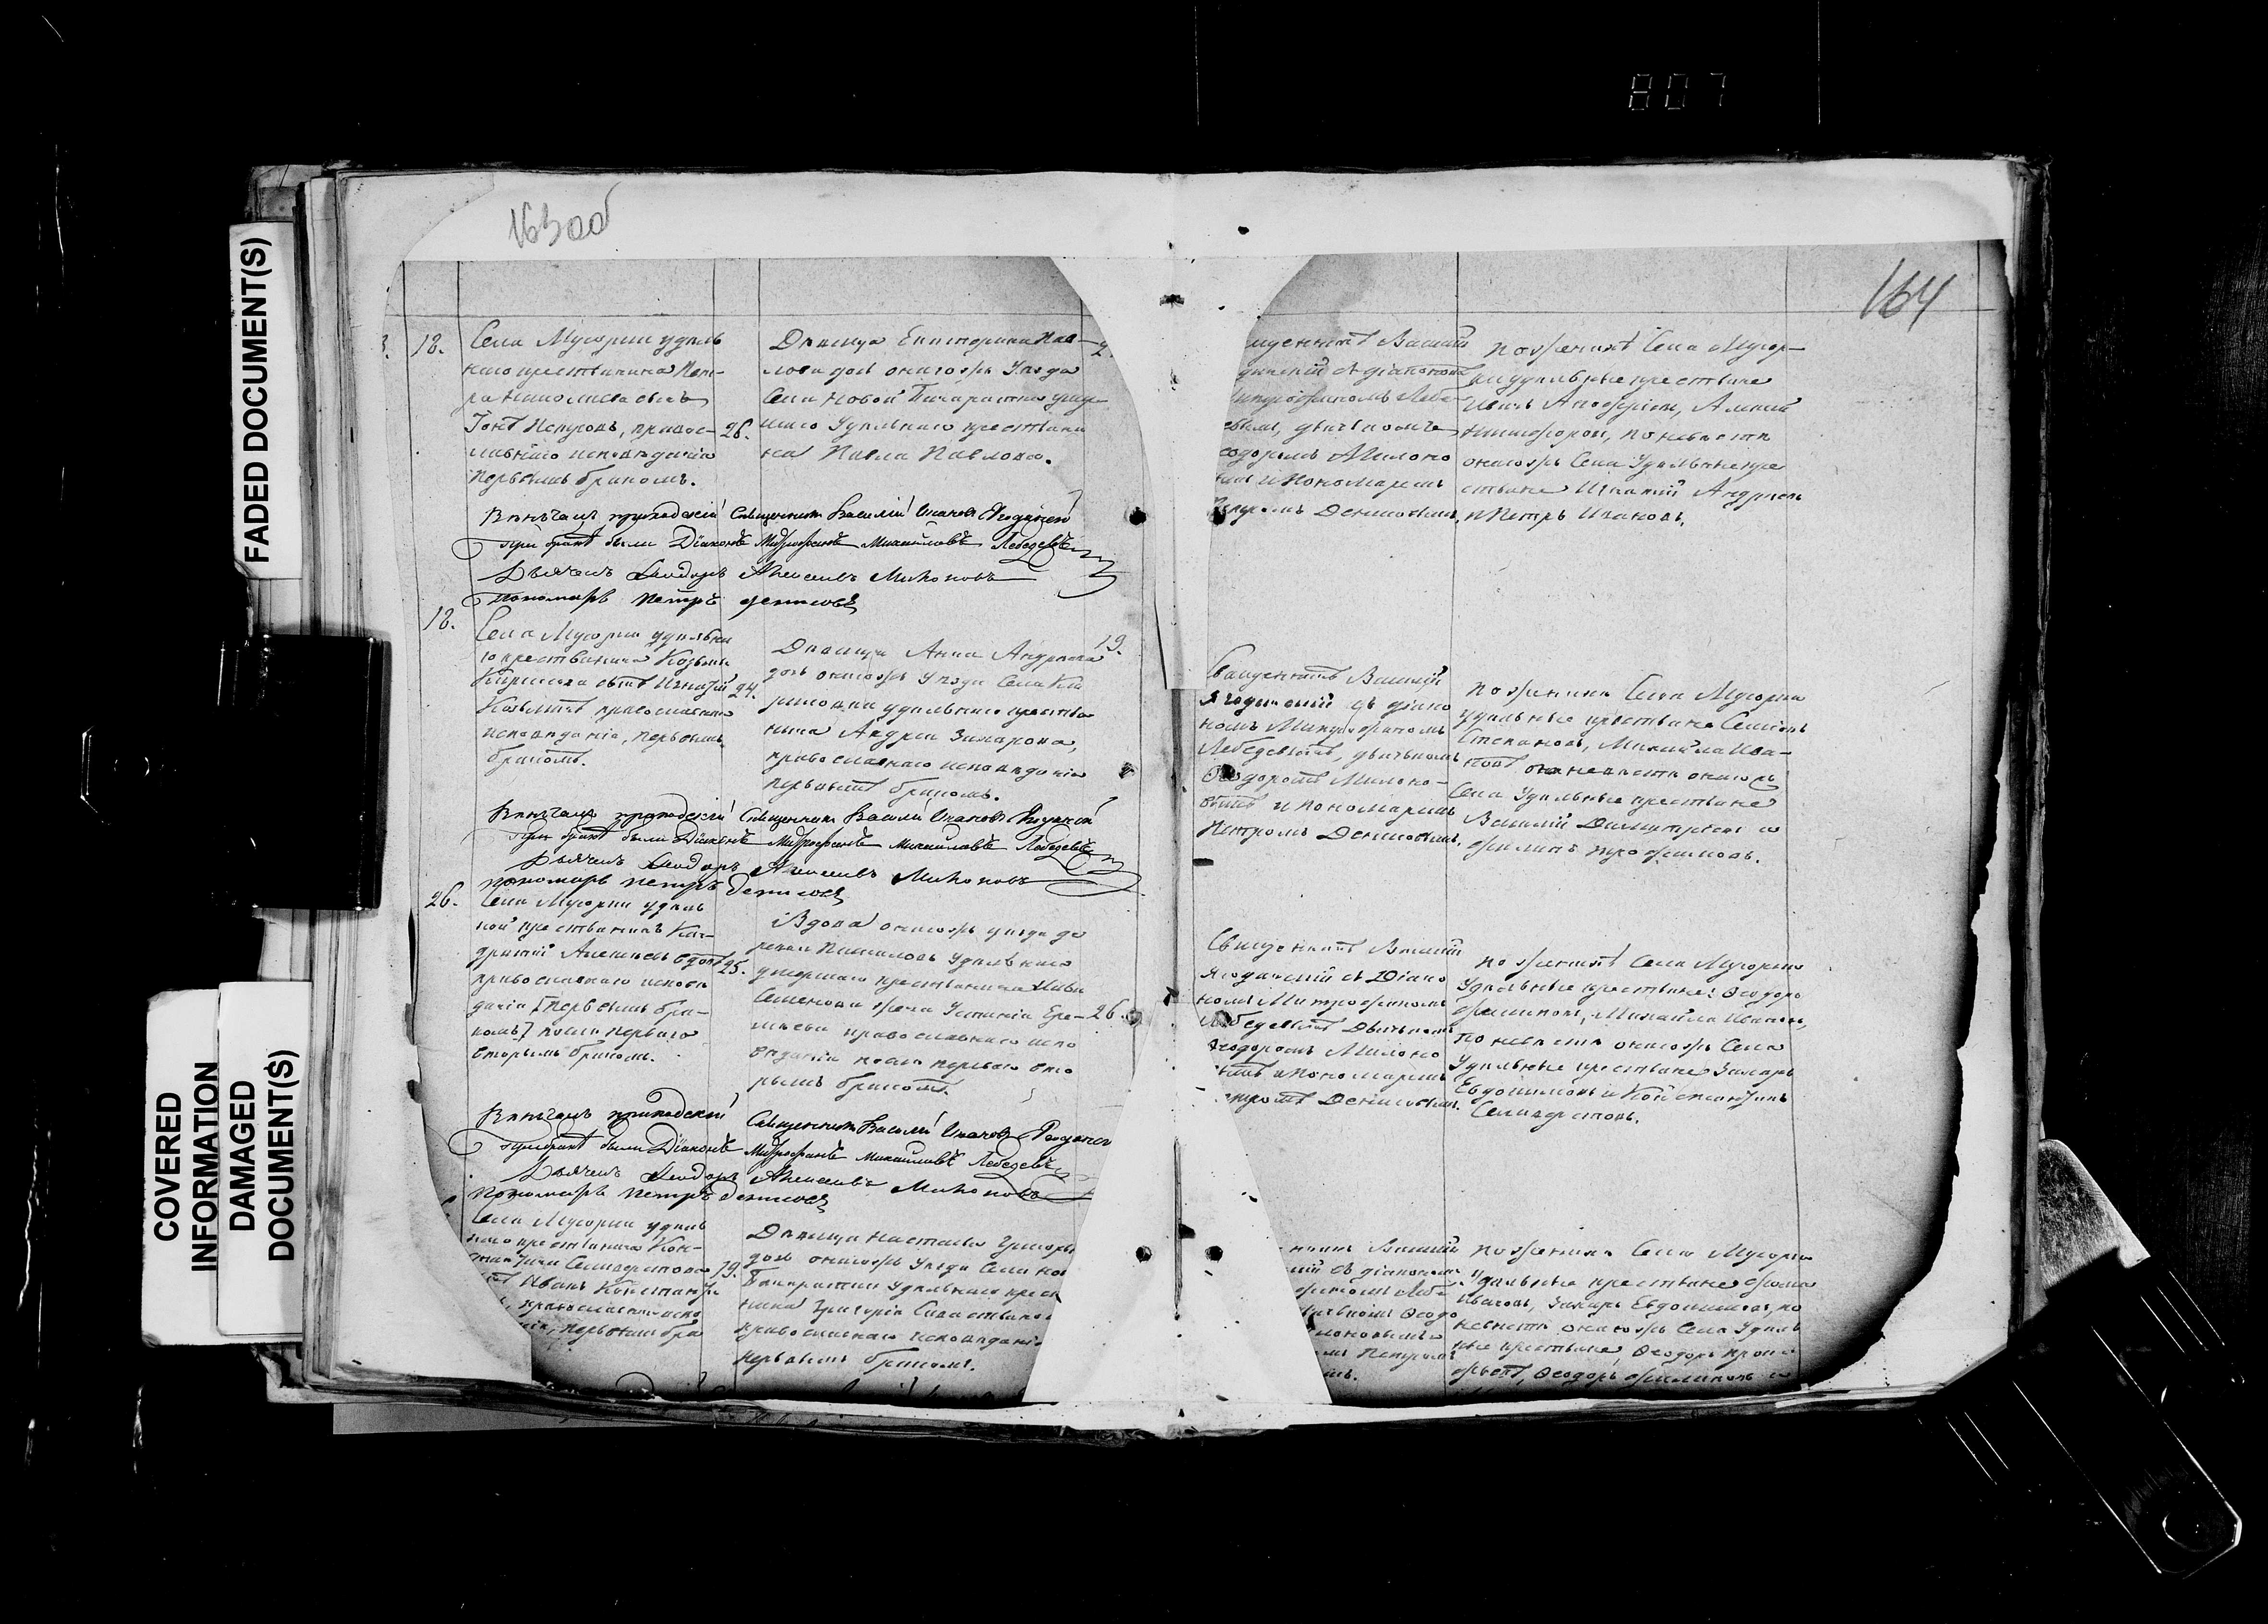 807
FADED DOCUMENT(S)
COVERED
INFORMATION
DAMAGED
DOCUMENT(S)
163 об
164
18.
Села Мусорки удѣль
наго крестьянина Пет-
ра Николаева сынъ
православ-
лавнаго исповѣданія
первымъ бракомъ.
26.
Дѣвица Екатерина Пав-
лова дочь онагожъ уѣзда
Села Новой Бинарадки
удѣльнаго крестьяни
на Павла Павлова.
2
Священникъ Василій
Ягодинскій съ діакономъ
Митрофаномъ Лебе
девымъ, дьячкомъ
Ѳеодоромъ Милоно
вымъ и Пономаремъ
Петромъ Денисовымъ.
По женихѣ Села Мусор-
ки удѣльные крестьяне
Алексѣй
Никифоровъ, по невѣстѣ
онагожъ Села Удѣльные кре
стьяне Игнатій Андреевъ
и Петръ Ивановъ.
Вѣнчалъ приходскій Священникъ Василій Ивановъ Ягодинскій
при бракѣ были Діаконъ Митрофанъ Михайловъ Лебедевъ
Дьячекъ Ѳеодоръ Алексѣевъ Милоновъ
пономарь Петръ Денисовъ
18.
Села Мусорки удѣльна
го крестьянина Козьмы
Кирилова сынъ Игнатій
Козьминъ православнаго
исповѣданія, первымъ
бракомъ.
24.
Дѣвица Анна Андреева
дочь онагожъ уѣзда Села
удѣльнаго крестья
нина Андрея Захарова,
православнаго исповѣданія
первымъ бракомъ.
19.
Священникъ Василій
Ягодинскій съ діако
номъ Митрофаномъ
Лебедевымъ, дьячкомъ
Ѳеодоромъ Милоно-
вымъ и пономаремъ
Петромъ Денисовымъ.
По женихѣ Села Мусорки
удѣльные крестьяне Семенъ
Степановъ, Михайла Ива-
новъ по невѣстѣ онагожъ
Села Удѣльные крестьяне
Василій Димитріевъ и
Филипъ Трофимовъ.
Вѣнчалъ приходскій Священникъ Василій Ивановъ Ягодинскій
при бракѣ были Діаконъ Митрофанъ Михайловъ Лебедевъ
Дьячекъ Ѳеодоръ Алексѣевъ Милоновъ
пономарь Петръ Денисовъ
26.
Села Мусорки удѣль
ной крестьянинъ Кон-
дратій Алексѣевъ вдовъ
православнаго исповѣ
данія [первымъ бра-
комъ] послѣ перваго
вторымъ бракомъ.
25.
Вдова онагожъ уѣзда де
ревни удѣльнаго
умершаго крестьянина Ивана
Семенова жена Устинія Ере-
мѣева православнаго испо
вѣданія послѣ перваго вто
рымъ бракомъ.
26.
Священникъ Василій
Ягодинскій съ Діако
номъ Митрофаномъ
Лебедевымъ Дьячкомъ
Ѳеодоромъ Милоно
вымъ и Пономаремъ
Петромъ Денисовымъ.
По женихѣ Села Мусорки
Удѣльные крестьяне: Ѳеодоръ
Филиповъ, Михайла Ивановъ,
по невѣстѣ онагожъ Села
Удѣльные крестьяне Захаръ
Евдокимовъ и Константинъ
Селиверстовъ.
Вѣнчалъ приходскій Священникъ Василій Ивановъ Ягодинскій
при бракѣ были Діаконъ Митрофанъ Михайловъ Лебедевъ
Дьячекъ Ѳеодоръ Алексѣевъ Милоновъ
пономарь Петръ Денисовъ
Села Мусорки удѣль
наго крестьянина Кон-
стантина Селиверстова
Иванъ Констант
православнаго испо
первымъ бра
19.
Дѣвица Настасья Григорь
дочь онагожъ уѣзда Села Но
Бинарадки удѣльнаго крест
нина Григорія Савастьянова
православнаго исповѣдані
первымъ бракомъ.
Василій
съ діакономъ
Лебе
Ѳеодо
Петромъ
По женихѣ Села Мусорки
Удѣльные крестьяне Фома
Ивановъ, Захаръ Евдокимовъ, по
невѣстѣ онагожъ Села Удѣль
ные крестьяне Ѳеодоръ
Ѳеодоръ Филиповъ и